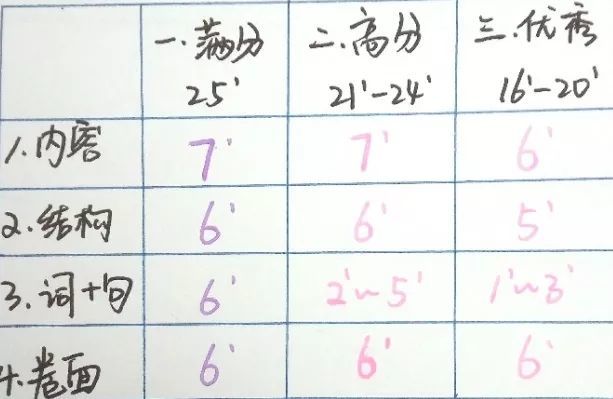 一.满分 二.高分 三.优秀
25' 21'-24' 16'-20'
1.内容 7' 7' 6'
2.结构 6' 6' 5'
3.词+句 6' 2'~5' 1'~3'
4.卷面 6' 6' 6'